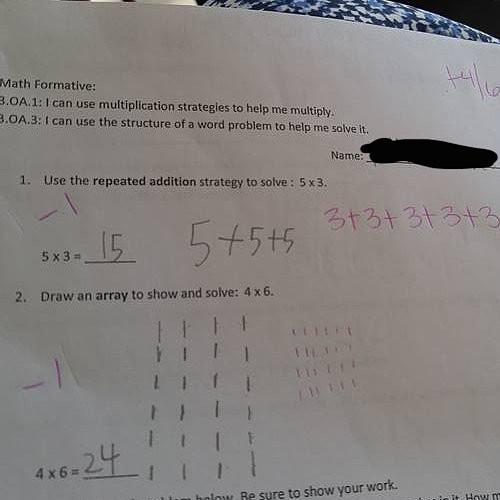 +4/6
Math Formative:
3.OA.1: I can use multiplication strategies to help me multiply.
3.OA.3: I can use the structure of a word problem to help me solve it.
Name:
1. Use the repeated addition strategy to solve : 5 x 3.
-1
3+3+3+3+3
5 x 3 = 15 5+5+5
2. Draw an array to show and solve: 4 x 6.
-1
4 x 6 = 24
below. Be sure to show your work.
in it. How